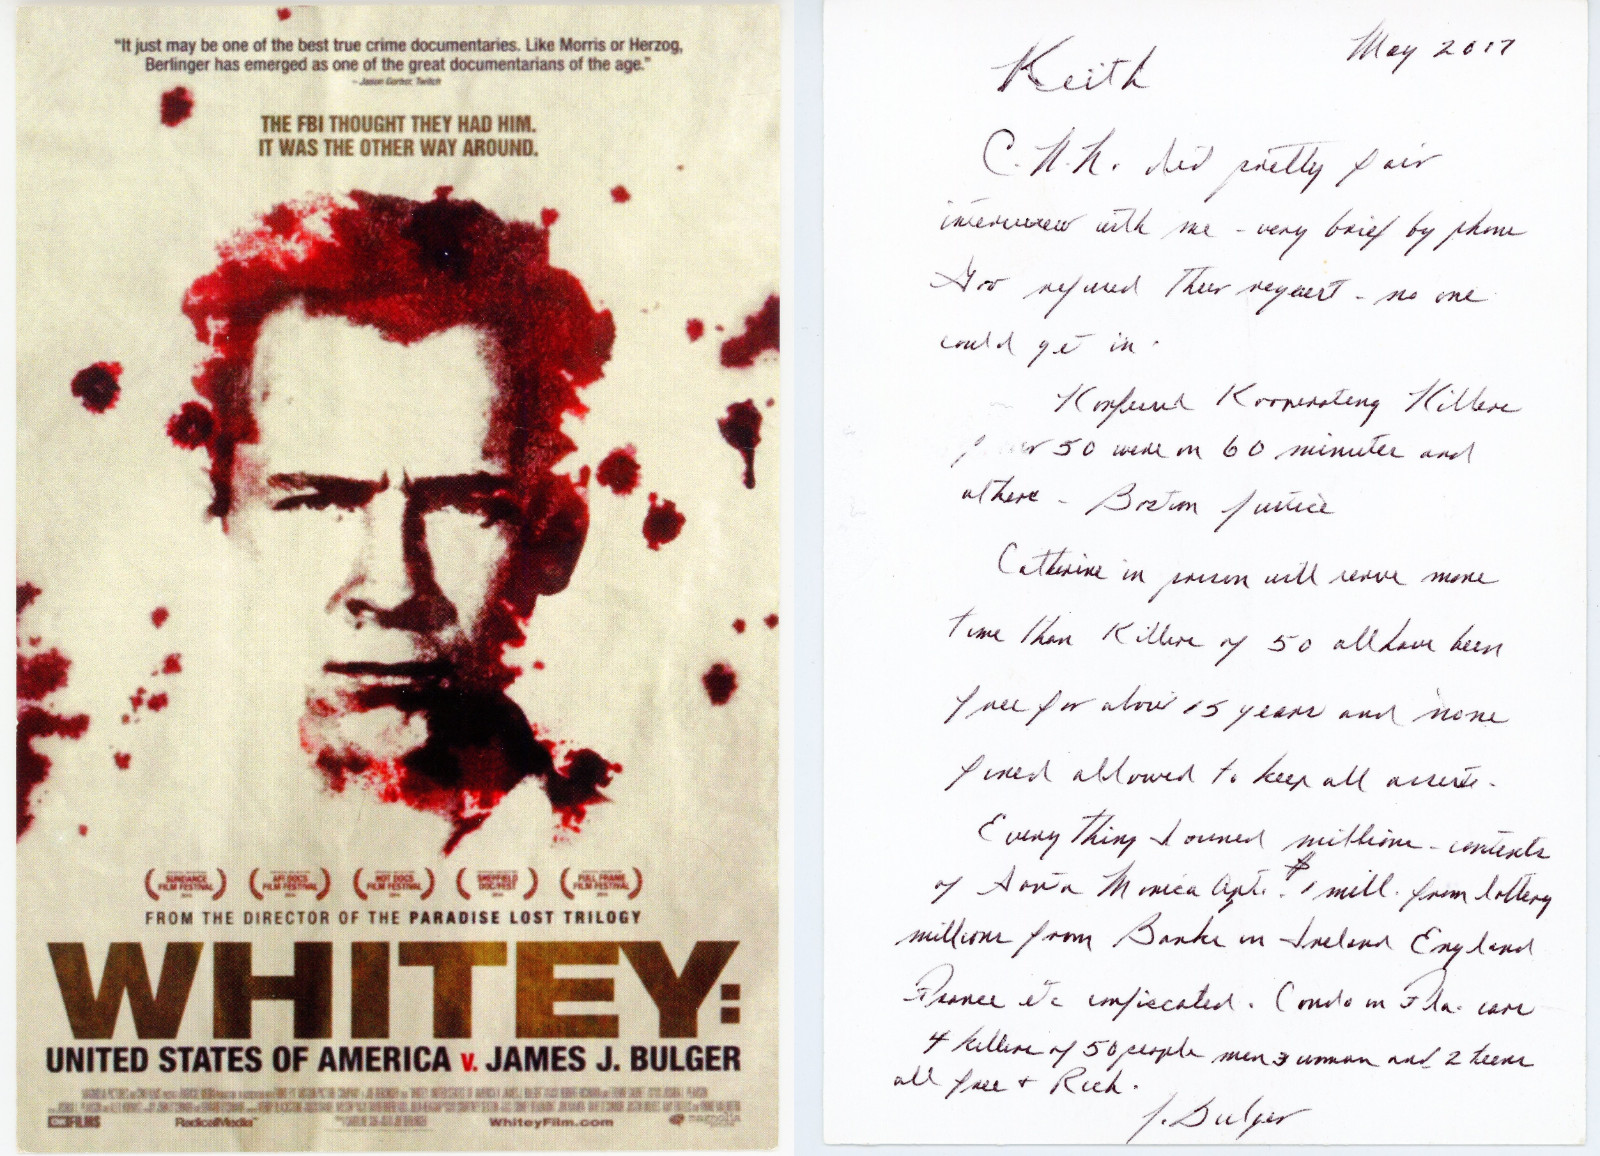 "It just may be one of the best true crime documentaries. Like Morris or Herzog,
Berlinger has emerged as one of the great documentarians of the age."
- Jason Gorber, Twitch
THE FBI THOUGHT THEY HAD HIM.
IT WAS THE OTHER WAY AROUND.
SUNDANCE
FILM FESTIVAL
AFI DOCS
FILM FESTIVAL
HOT DOCS
FILM FESTIVAL
SHEFFIELD
DOC/FEST
FULL FRAME
FILM FESTIVAL
FROM THE DIRECTOR OF THE PARADISE LOST TRILOGY
WHITEY:
UNITED STATES OF AMERICA v. JAMES J. BULGER
CNN FILMS RadicalMedia WhiteyFilm.com magnolia
May 2017
Keith
C.N.N. did pretty fair
interview with me - very brief by phone
Gov refused their request - no one
could get in.
Konfused Kooperating Killers
50 were on 60 minutes and
others - Boston Justice
Catherine in prison will serve more
time than Killers of 50 all have been
free for about 15 years and none
fined allowed to keep all assets.
Everything I owned millions - contents
of Santa Monica Apt. $1 mill. from lottery
millions from Banks in Ireland England
France etc confiscated. Condo in Fla. cars
4 killers of 50 people men 3 woman and 2 teens
all free + Rich.
J. Bulger